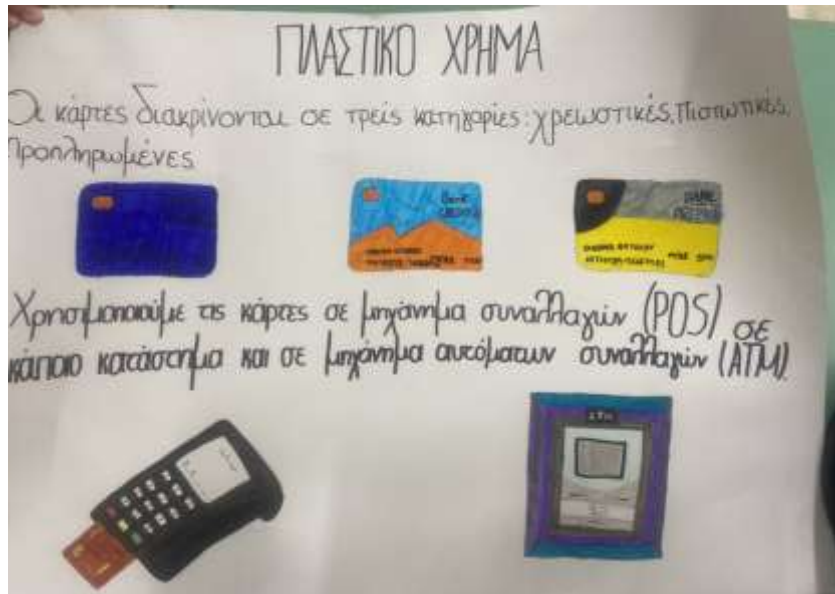 ΠΛΑΣΤΙΚΟ ΧΡΗΜΑ
Οι κάρτες διακρίνονται σε τρείς κατηγορίες: χρεωστικές, πιστωτικές,
προπληρωμένες
BANK
Χρησιμοποιούμε τις κάρτες σε μηχάνημα συναλλαγών (POS) σε
κάποιο κατάστημα και σε μηχάνημα αυτόματων συναλλαγών (ATM).
ATM